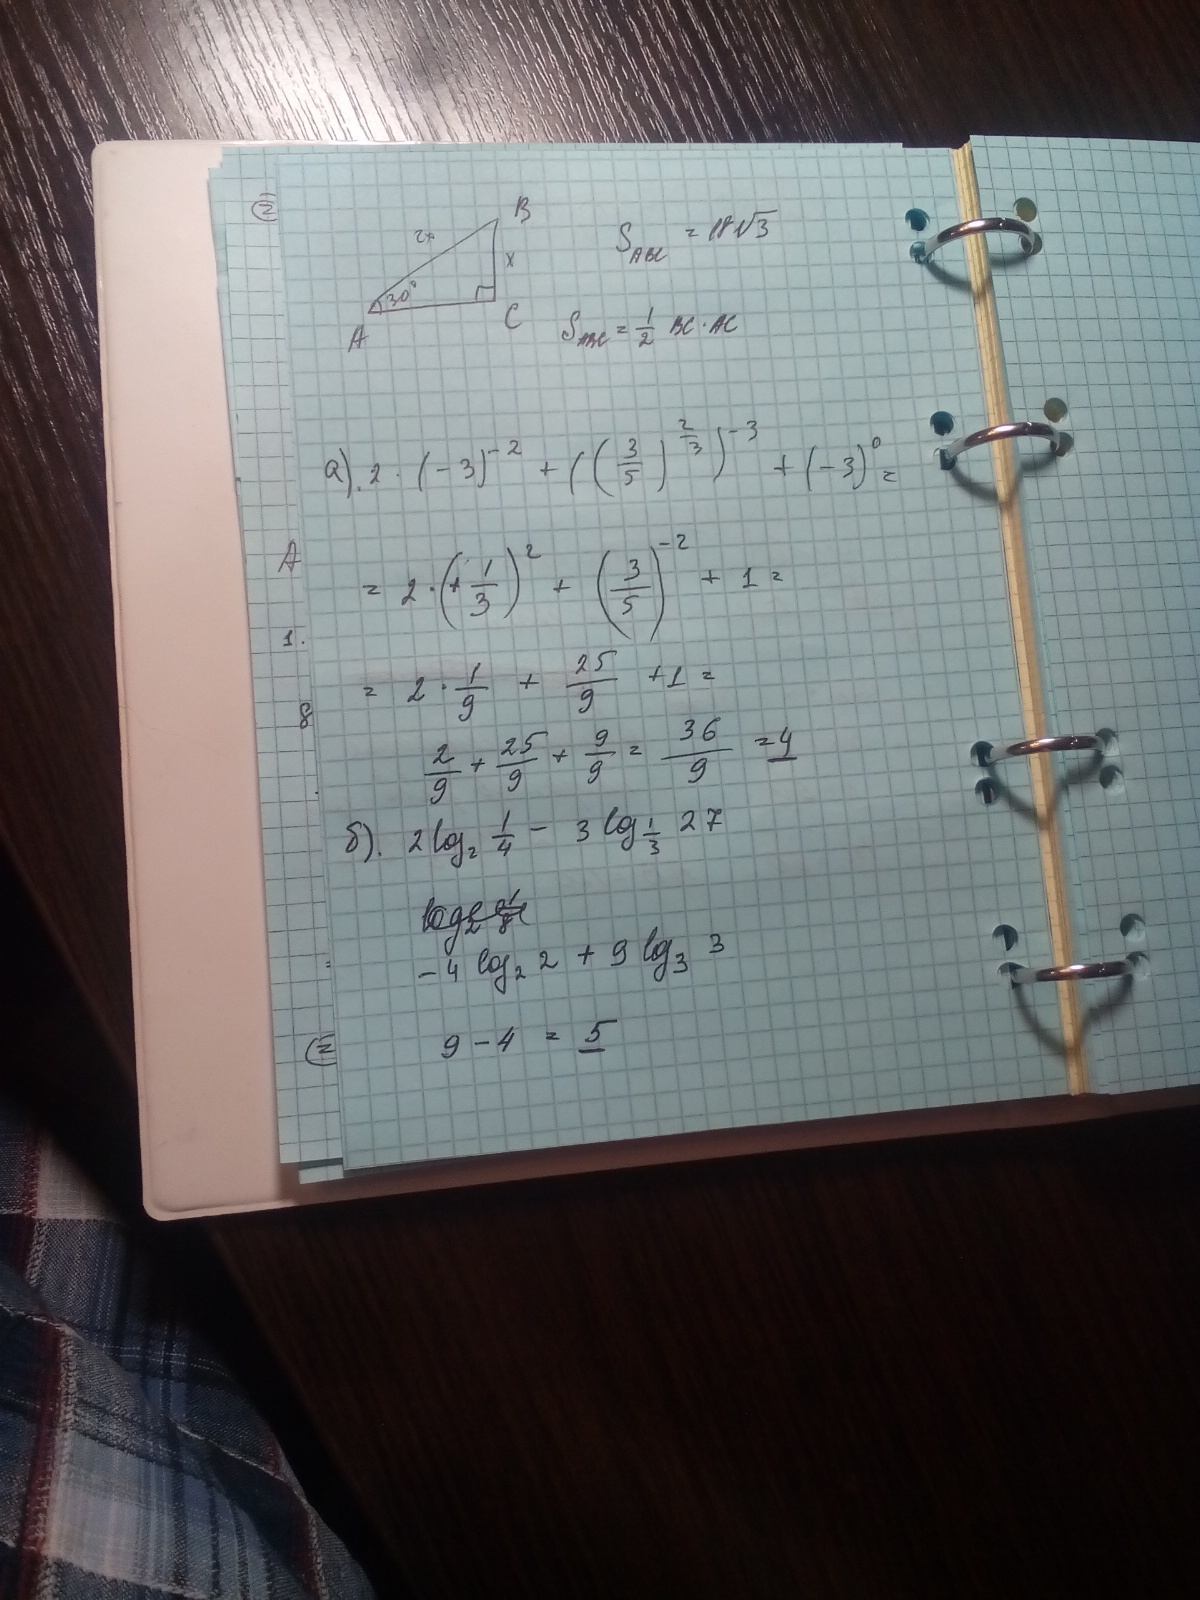 ②
B
2x
x
30°
A
C
S_ABC = 18√3
S_ABC = 1/2 BC · AC
а). 2 · (-3)^-2 + ((3/5)^2/3)^-3 + (-3)^0 =
= 2 · (+1/3)^2 + (3/5)^-2 + 1 =
= 2 · 1/9 + 25/9 + 1 =
2/9 + 25/9 + 9/9 = 36/9 = 4
б). 2 log_2 1/4 - 3 log_1/3 27
-4 log_2 2 + 9 log_3 3
9 - 4 = 5
A
1.
8